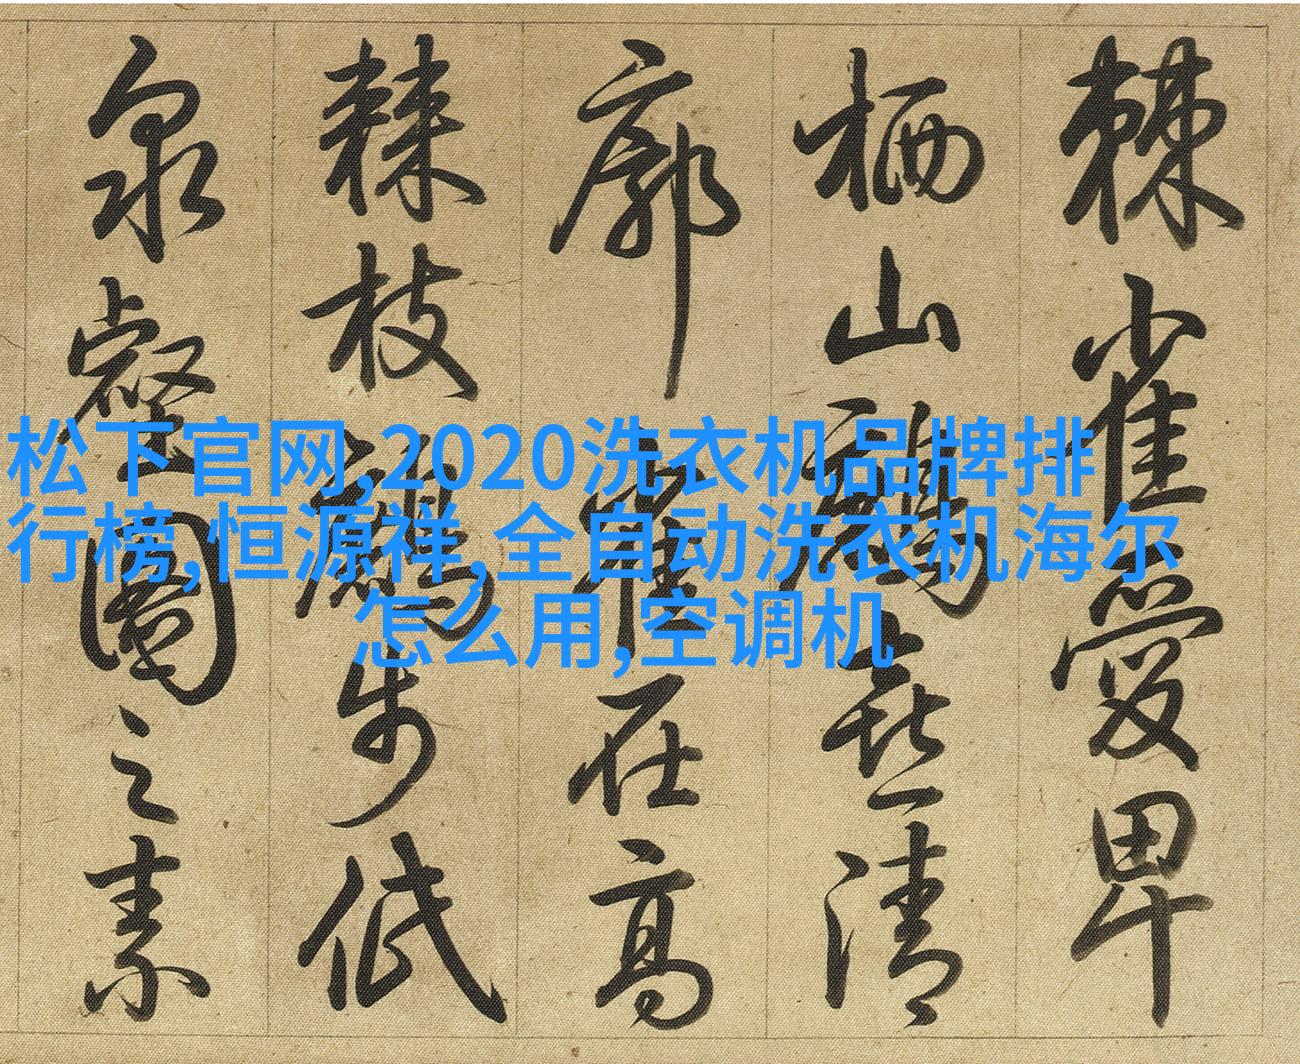 棘雀愛卑
栖山鶴喜清
廓雀在高
棘枝鶴步低
泉壑圖之素
松下官网,2020洗衣机品牌排
行榜,恒源祥,全自动洗衣机海尔
怎么用,空调机